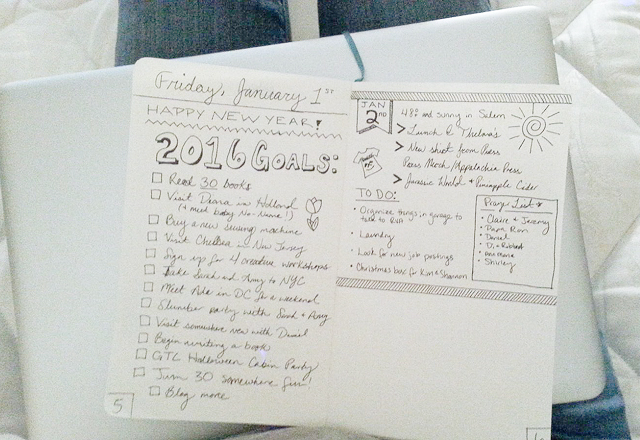 Friday, January 1ST
HAPPY NEW YEAR!
2016 GOALS:
Read 30 books
Visit Deana in Holland
(+ meet baby No-Name!!)
Buy a new sewing machine
Visit Chelsea in New Jersey
Sign up for 4 creative workshops
Take Sarah and Amy to NYC
Meet Ada in DC for a weekend
Slumber party with Sarah + Amy
Visit somewhere new with Daniel
Begin writing a book
GTC Halloween Cabin Party
Turn 30 somewhere fun!
Blog more
5
JAN
2ND
48° and sunny in Salem
> Lunch @ Thelma's
> New shirt from Press
Press Mech/Appalachia Press
> Jurassic World + Pineapple Cider
TO DO:
• Organize things in garage to
take to RVA
• Laundry
• Look for new job postings
• Christmas box for Kim & Shannon
Pray List
• Claire & Jeremy
• Papa Ron
• Daniel
• D. + Robert
• Ann Marie
• Shirley